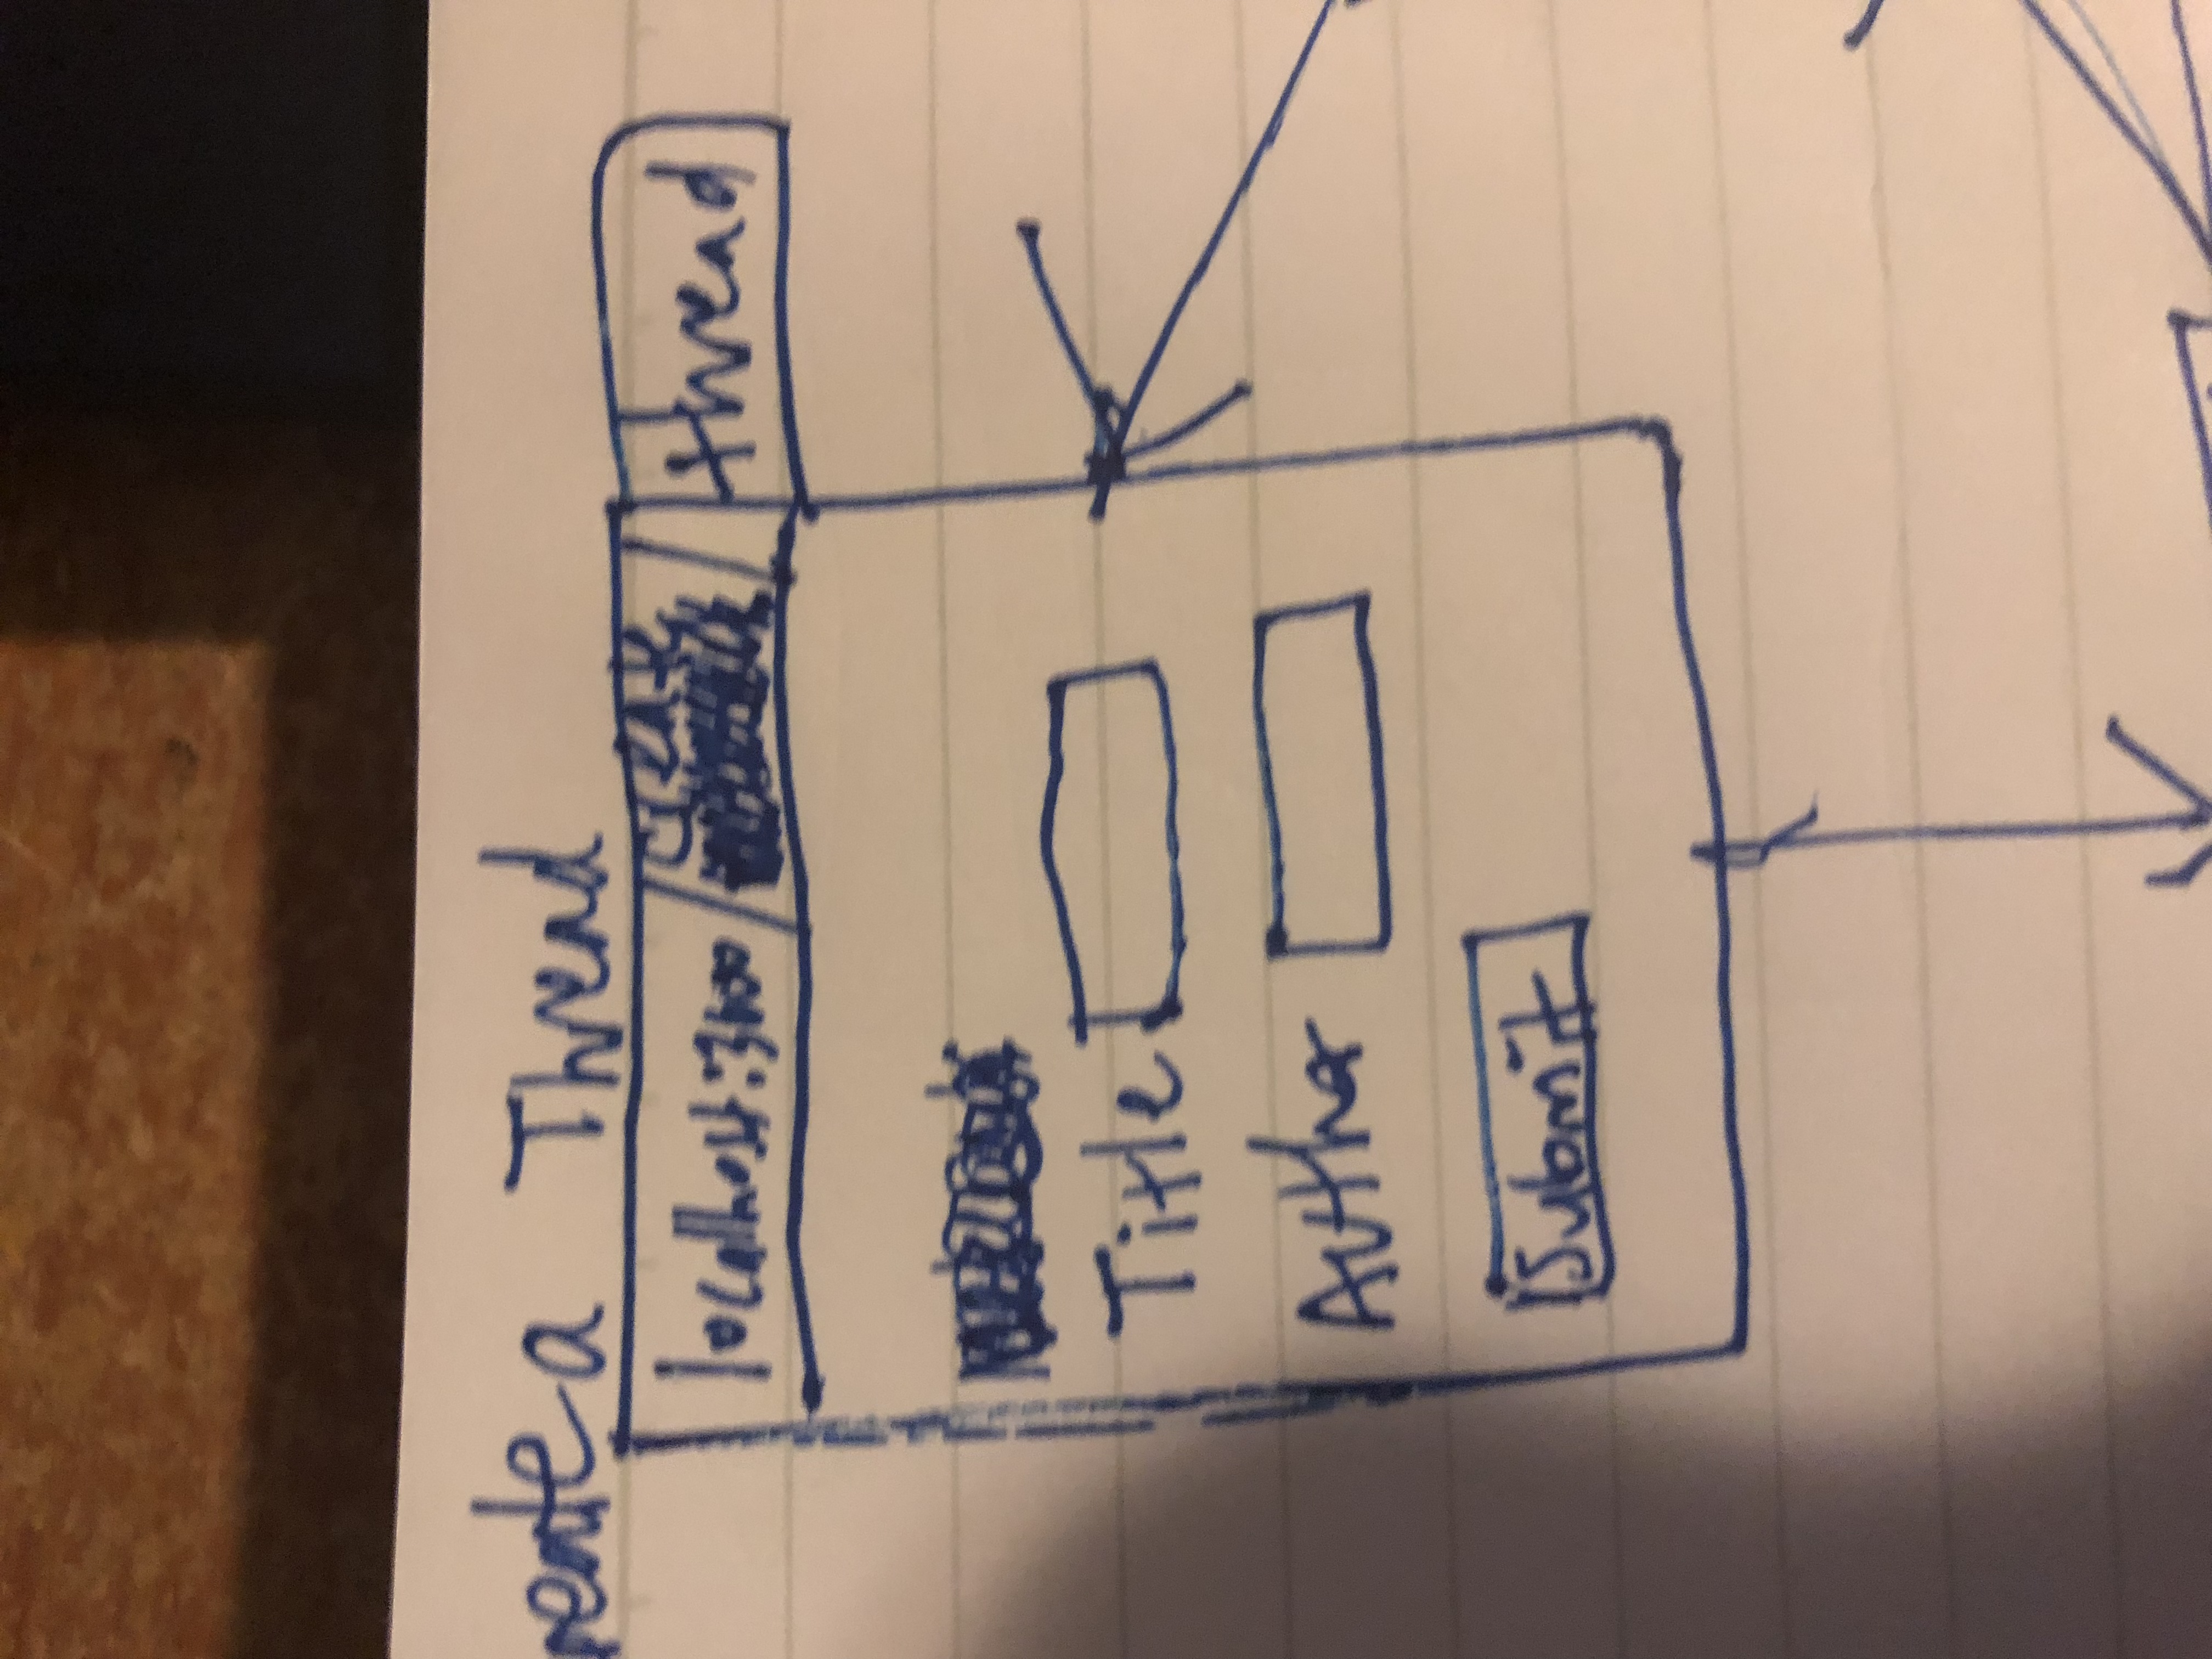 reate a Thread
localhost:3000/create/thread
Title
Author
Submit